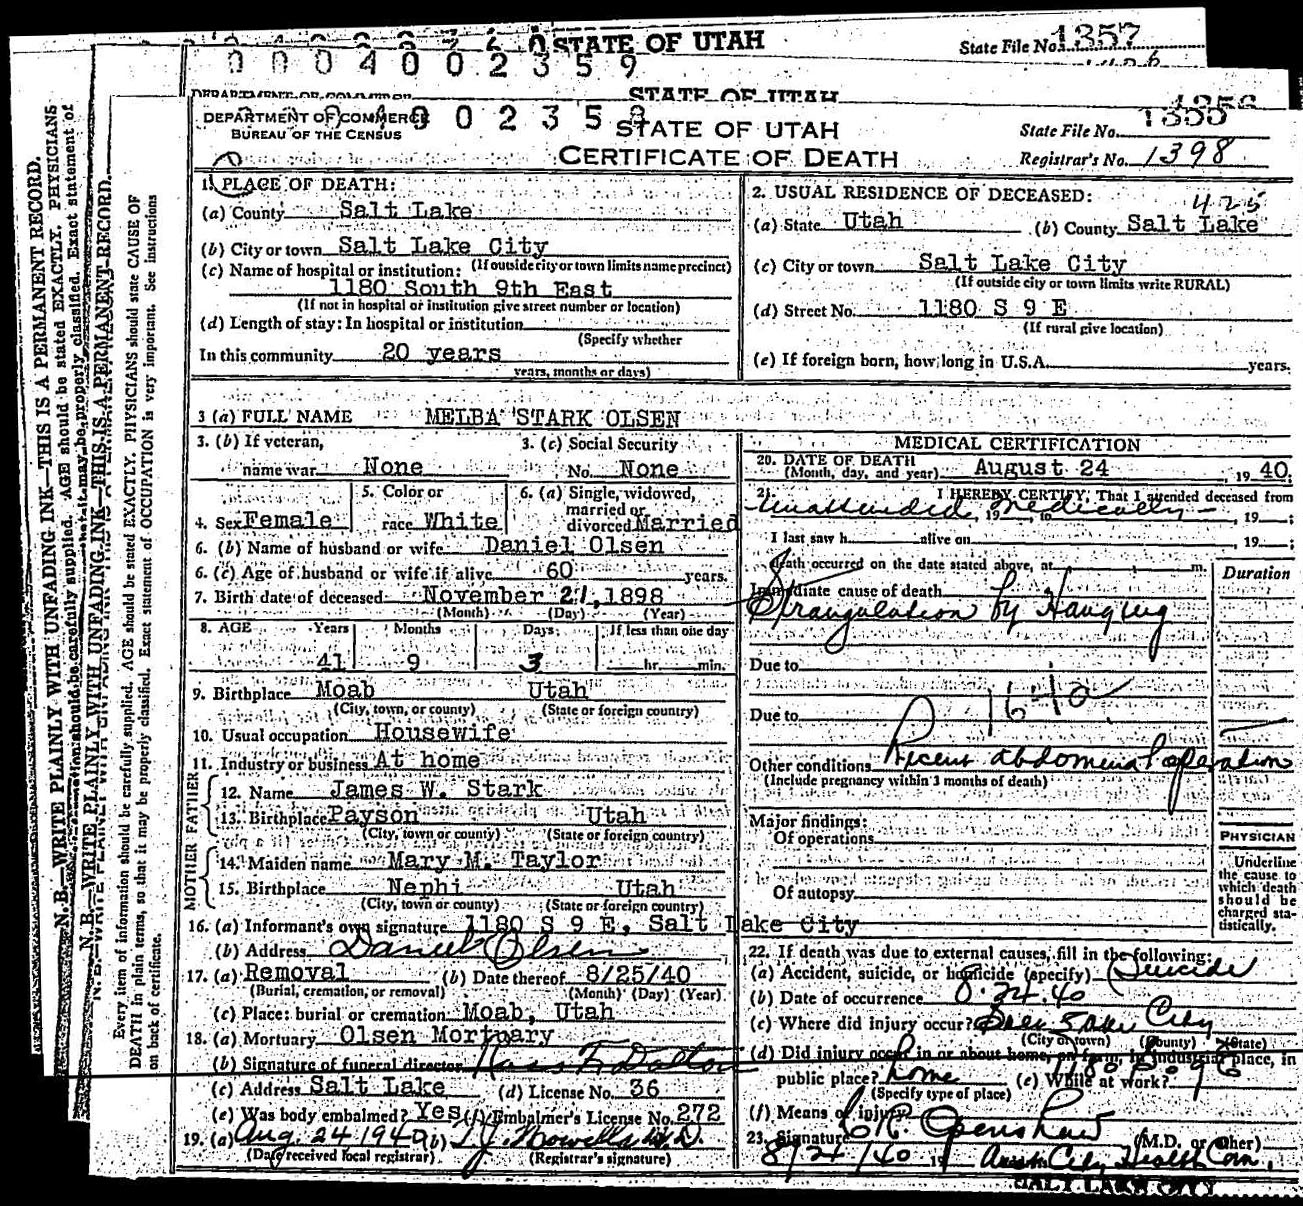 STATE OF UTAH
State File No. 1357
0 0 0 4 0 0 2 3 5 9
STATE OF UTAH
1356
DEPARTMENT OF COMMERCE
BUREAU OF THE CENSUS
0 2 3 5 8
STATE OF UTAH
CERTIFICATE OF DEATH
State File No. 1355
Registrar's No. 1398
1. PLACE OF DEATH:
(a) County Salt Lake
(b) City or town Salt Lake City
(If outside city or town limits name precinct)
(c) Name of hospital or institution:
1180 South 9th East
(If not in hospital or institution give street number or location)
(d) Length of stay: In hospital or institution
(Specify whether
In this community 20 years
years, months or days)
2. USUAL RESIDENCE OF DECEASED:
425
(a) State Utah (b) County Salt Lake
(c) City or town Salt Lake City
(If outside city or town limits write RURAL)
(d) Street No. 1180 S 9 E
(If rural give location)
(e) If foreign born, how long in U.S.A. years.
3 (a) FULL NAME MELBA STARK OLSEN
3. (b) If veteran, name war None
3. (c) Social Security No. None
4. Sex Female
5. Color or race White
6. (a) Single, widowed, married or divorced Married
6. (b) Name of husband or wife Daniel Olsen
6. (c) Age of husband or wife if alive 60 years.
7. Birth date of deceased November 21, 1898
(Month) (Day) (Year)
8. AGE Years Months Days If less than one day
41 9 3 hr. min.
9. Birthplace Moab Utah
(City, town, or county) (State or foreign country)
10. Usual occupation Housewife
11. Industry or business At home
FATHER
12. Name James W. Stark
13. Birthplace Payson Utah
(City, town or county) (State or foreign country)
MOTHER
14. Maiden name Mary M. Taylor
15. Birthplace Nephi Utah
(City, town or county) (State or foreign country)
16. (a) Informant's own signature 1180 S 9 E, Salt Lake City
(b) Address Daniel Olsen
17. (a) Removal (b) Date thereof 8/25/40
(Burial, cremation, or removal) (Month) (Day) (Year)
(c) Place: burial or cremation Moab, Utah
18. (a) Mortuary Olsen Mortuary
(b) Signature of funeral director F. Dalton
(c) Address Salt Lake (d) License No. 36
(e) Was body embalmed? Yes (f) Embalmer's License No. 272
19. (a) Aug. 24 1940 (b) M.D.
(Date received local registrar) (Registrar's signature)
MEDICAL CERTIFICATION
20. DATE OF DEATH
(Month, day, and year) August 24, 1940.
21. I HEREBY CERTIFY, That I attended deceased from
Unattended, 19 to Medically, 19 ;
I last saw h alive on , 19 ;
death occurred on the date stated above, at m.
Duration
Immediate cause of death
Strangulation by Hanging
Due to
Due to
Other conditions Recent abdominal operation
(Include pregnancy within 3 months of death)
Major findings:
Of operations
Of autopsy
PHYSICIAN
Underline
the cause to
which death
should be
charged sta-
tistically.
22. If death was due to external causes, fill in the following:
(a) Accident, suicide, or homicide (specify) Suicide
(b) Date of occurrence 8.24.40
(c) Where did injury occur? Salt Lake City
(City or town) (County) (State)
(d) Did injury occur in or about home, on farm, in industrial place, in
public place? home (e) While at work?
(Specify type of place)
(f) Means of injury
23. Signature (M.D. or other)
8/24/40 City Health Com.
SALT LAKE CITY
N. B.—WRITE PLAINLY WITH UNFADING INK—THIS IS A PERMANENT RECORD.
N. B.—WRITE PLAINLY WITH UNFADING INK—THIS IS A PERMANENT RECORD.
Every item of information should be carefully supplied. AGE should be stated EXACTLY. PHYSICIANS should state CAUSE OF
DEATH in plain terms, so that it may be properly classified. Exact statement of OCCUPATION is very important. See instructions
on back of certificate.